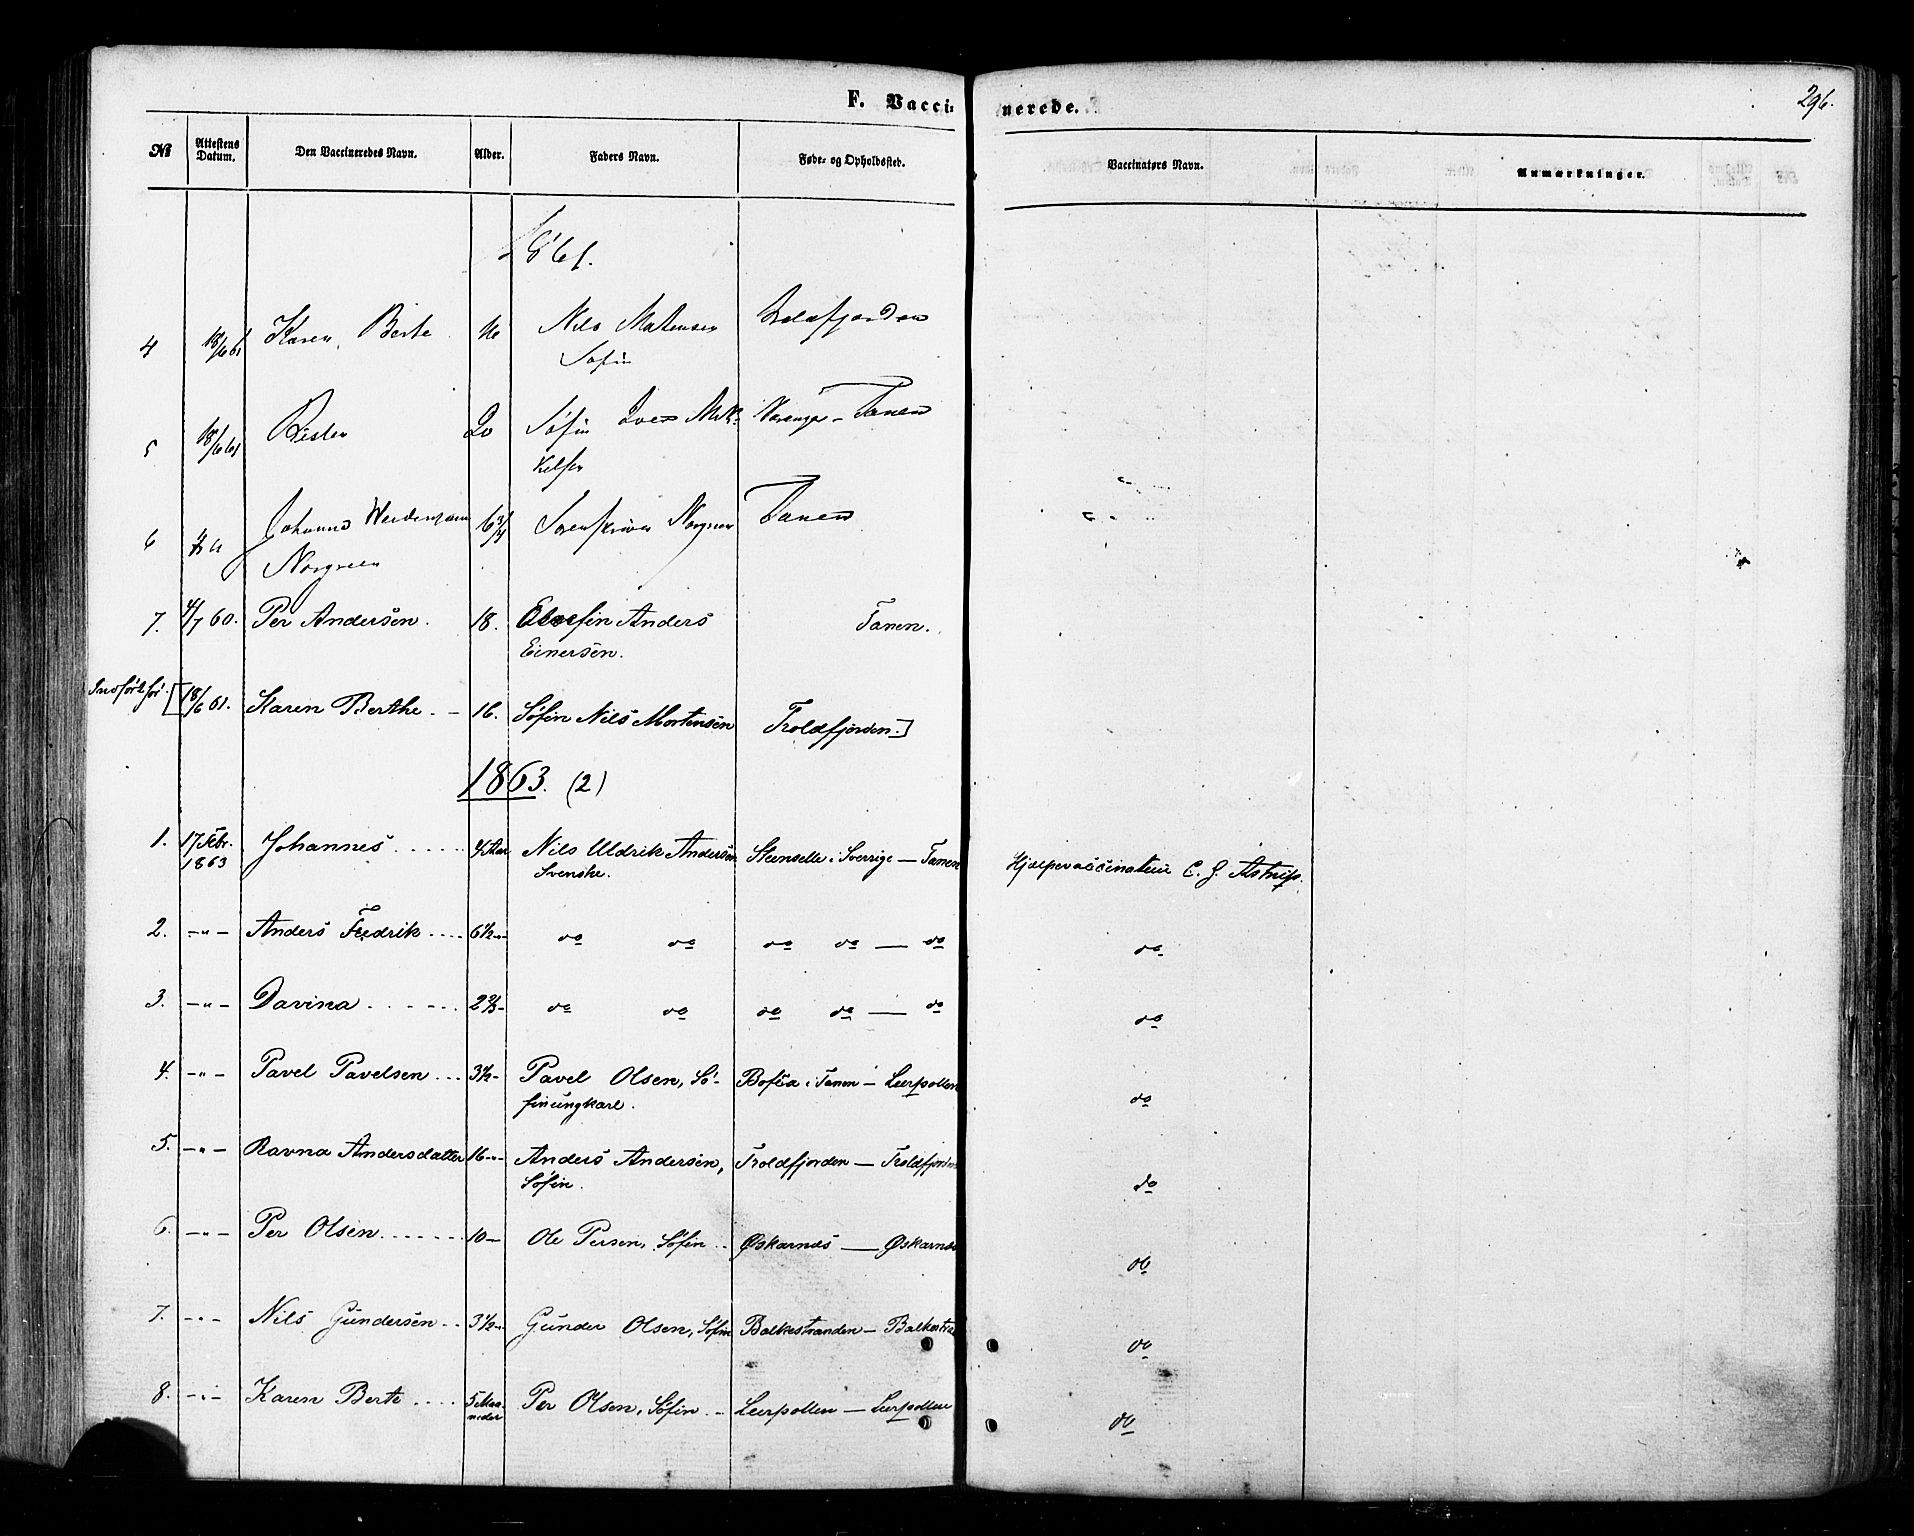 F. Vaccinerede.
296.
No Attestens Datum. Den Vaccineredes Navn. Alder. Faders Navn. Føde- og Opholdssted. Vaccinatørs Navn. Anmærkninger.
1861.
4 18/6 61 Karen Berte 16 Nils Mortensen
Søfin
5 18/6 61 20 Søfin Mik- Varanger – Tanen
kelsen
6 Johanne 6 3/4 Sorenskriver Norgreen Tanen
Norgreen
7. 4/7 60. Per Andersen. 18. Elvefin Anders Tanen.
Einersen.
[18/6 61. Karen Berthe. – 16. Søfin Nils Mortensen Troldfjorden.]
1863. (2)
1. 17 Febr. Johannes ..... 4 Aar Nils Uldrik Andersen Steenselle i Sverrige — Tanen Hjælpevaccinateur C. J. Astrup.
1863 Svenske.
2. –"– Anders Fredrik .... 6 1/2 –"– do do do do — do do
3. –"– Davina ...... 2 2/3 – do do do do — do do
4. –"– Pavel Pavelsen ... 3 1/2 – Pavel Olsen, Sø- Bofæa i Tanen – Leerpollen do
finungkarl.
5. –"– Ravna Andersdatter 16 –"– Anders Andersen, Troldfjorden — Troldfjorden do
Søfin.
6. –"– Per Olsen ....... 10 – Ole Persen, Søfin .. Øskarnæs — Øskarnæs do
7. –"– Nils Gundersen .. 3 1/2 –"– Gunder Olsen, Søfin Balkestranden – Balkestra do
8. –"– Karen Berte .... 5 Maa- Per Olsen, Søfin .. Leerpollen — Leerpollen do
neder